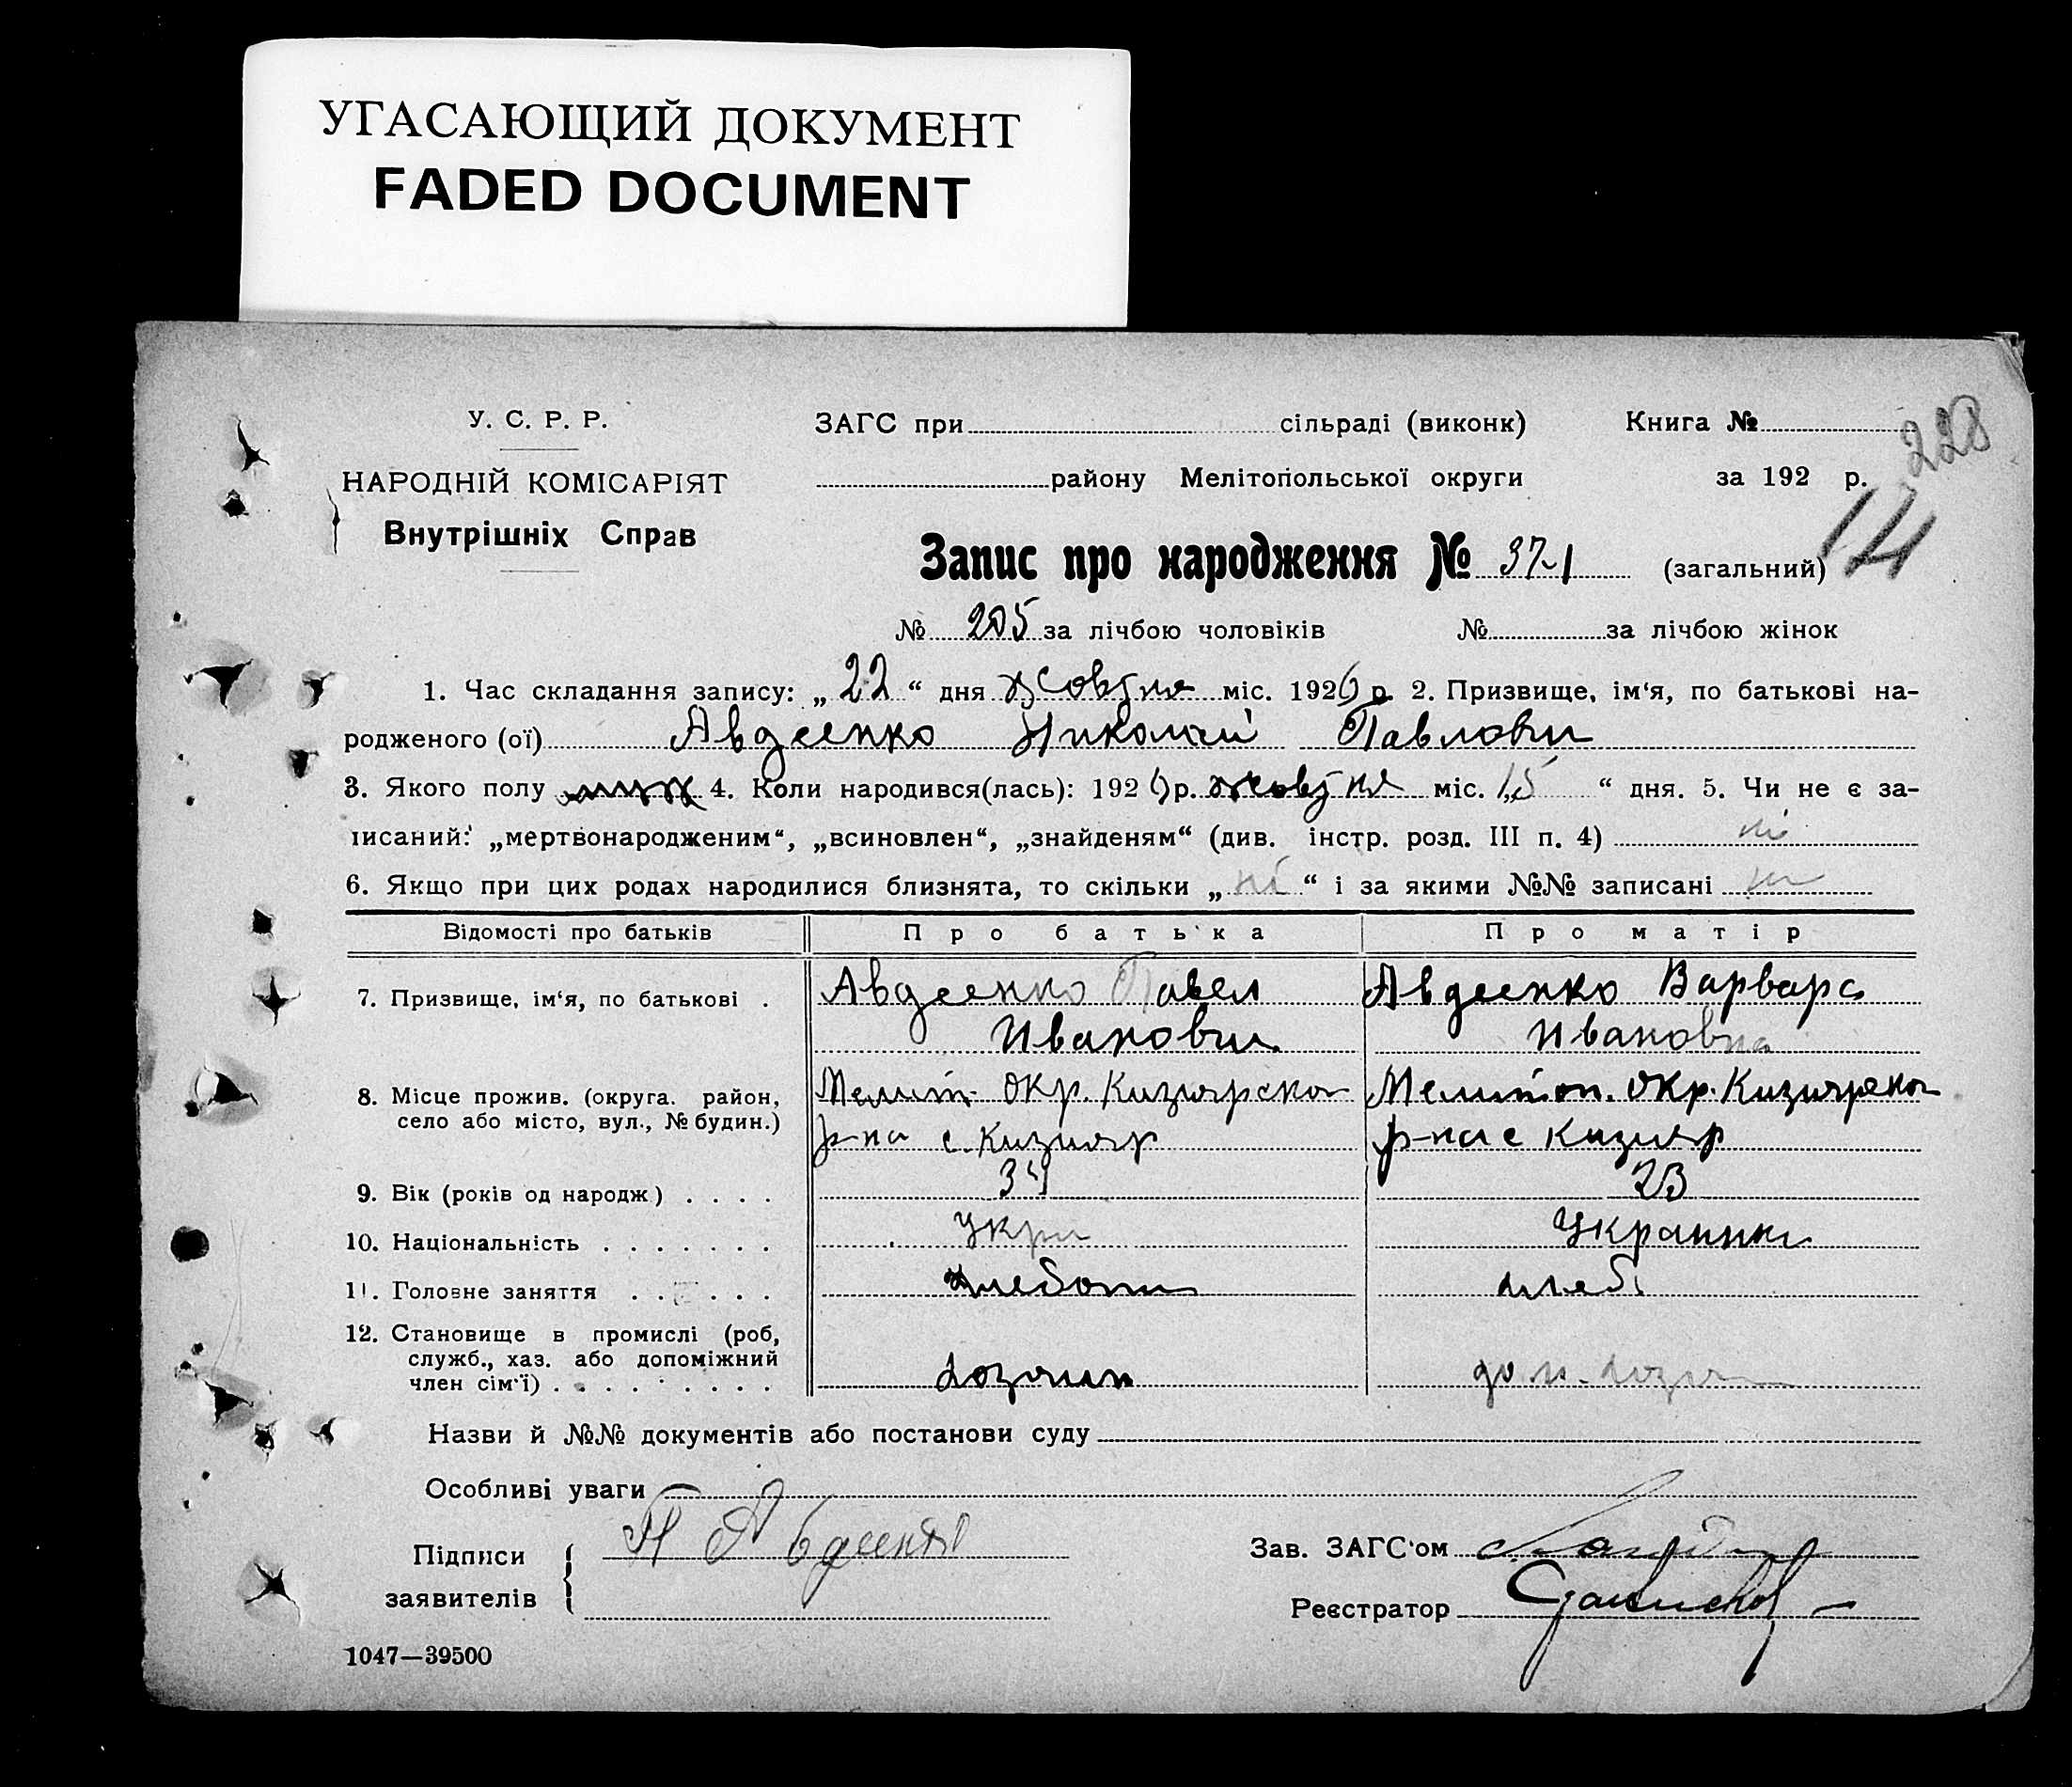 УГАСАЮЩИЙ ДОКУМЕНТ
FADED DOCUMENT
У. С. Р. Р.
НАРОДНІЙ КОМІСАРІЯТ
Внутрішніх Справ
ЗАГС при сільраді (виконк)
Книга №
228
району Мелітопольської округи
за 192 р.
14
Запис про народження № 371 (загальний)
№ 205 за лічбою чоловіків № за лічбою жінок
1. Час складання запису: „ 22 “ дня жовтня міс. 1926 р. 2. Призвище, ім‘я, по батькові на-
родженого (ої) Авдеенко Николай Павлович
3. Якого полу муж 4. Коли народився(лась): 1926 р. жовтня міс. „15 “ дня. 5. Чи не є за-
писаний: „мертвонародженим“, „всиновлен“, „знайденям“ (див. інстр. розд. III п. 4) ні
6. Якщо при цих родах народилися близнята, то скільки „ ні “ і за якими №№ записані ні
Відомості про батьків
Про батька
Про матір
7. Призвище, ім‘я, по батькові .
Авдеенко Павел
Иванович
Авдеенко Варвара
Ивановна
8. Місце прожив. (округа. район,
село або місто, вул., № будин.)
Мелит. окр. Кизиярског
р-на с. Кизияр
Мелитоп. окр. Кизиярског
р-на с Кизияр
9. Вік (років од народж) . . . .
34
23
10. Національність . . . . . . .
Укра
Украинка
11. Головне заняття . . . . . .
хлебоп
хлеб
12. Становище в промислі (роб,
служб., хаз. або допоміжний
член сім‘ї) . . . . . . . . .
хозяин
дом. хозя
Назви й №№ документів або постанови суду
Особливі уваги
Підписи
заявителів
П Авдеенко
Зав. ЗАГС‘ом
Реєстратор
1047—39500